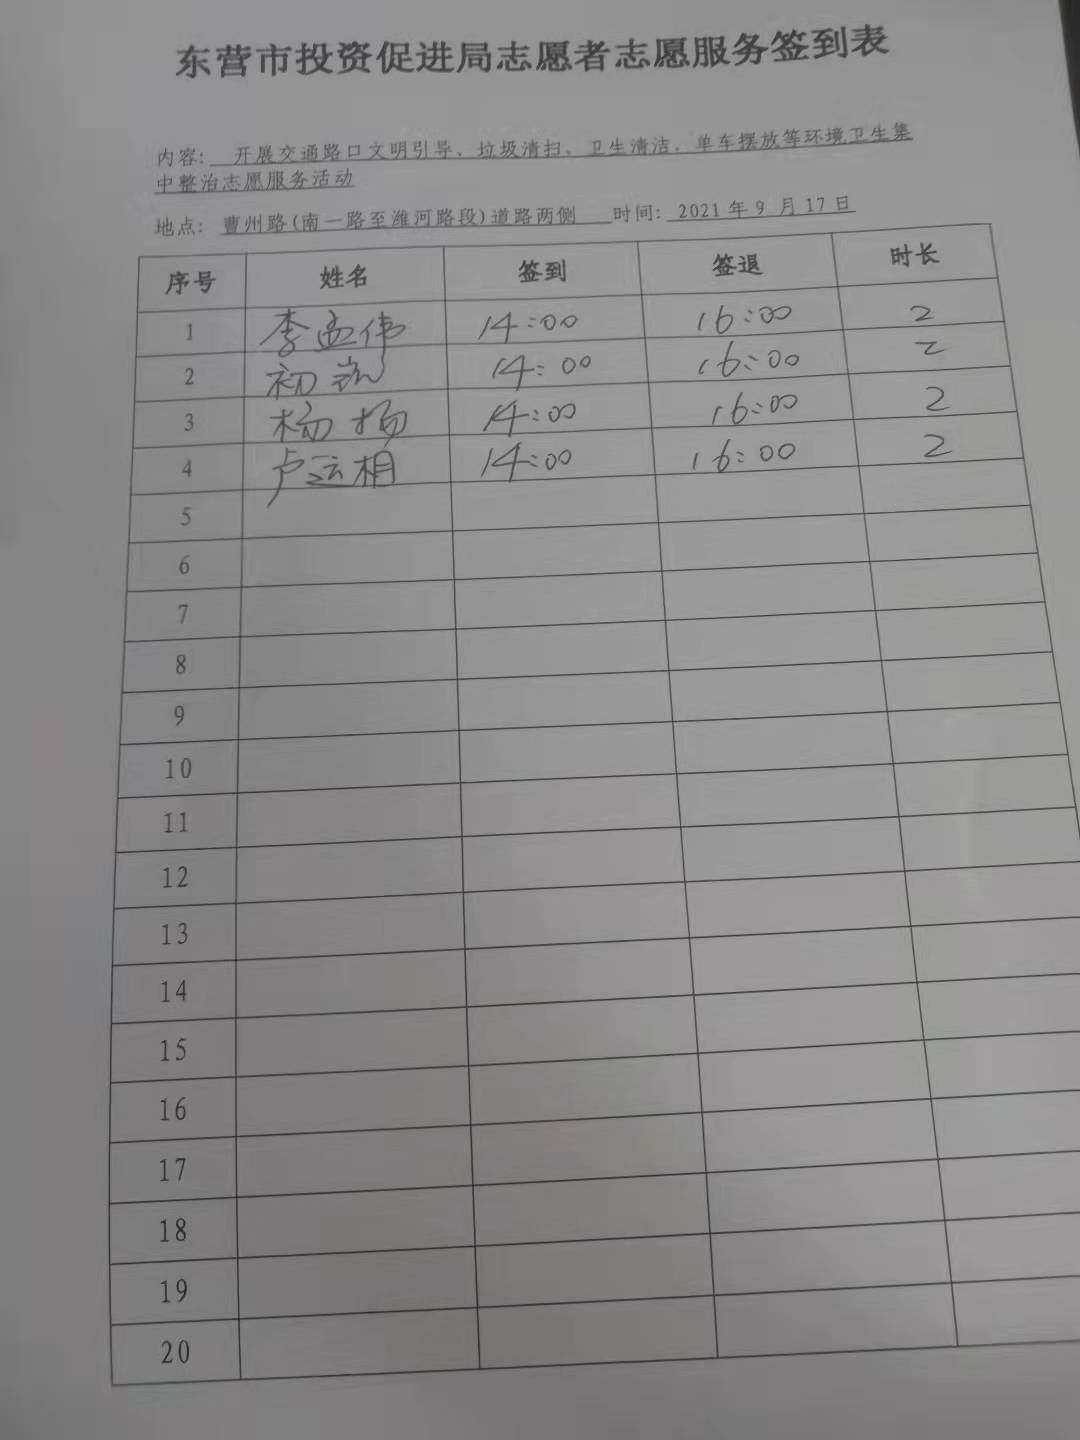 东营市投资促进局志愿者志愿服务签到表
内容: 开展交通路口文明引导、垃圾清扫、卫生清洁、单车摆放等环境卫生集
中整治志愿服务活动
地点: 曹州路(南一路至潍河路段)道路两侧 时间: 2021年9月17日
序号 姓名 签到 签退 时长
1 李孟伟 14:00 16:00 2
2 初 14:00 16:00 2
3 杨扬 14:00 16:00 2
4 卢运相 14:00 16:00 2
5
6
7
8
9
10
11
12
13
14
15
16
17
18
19
20